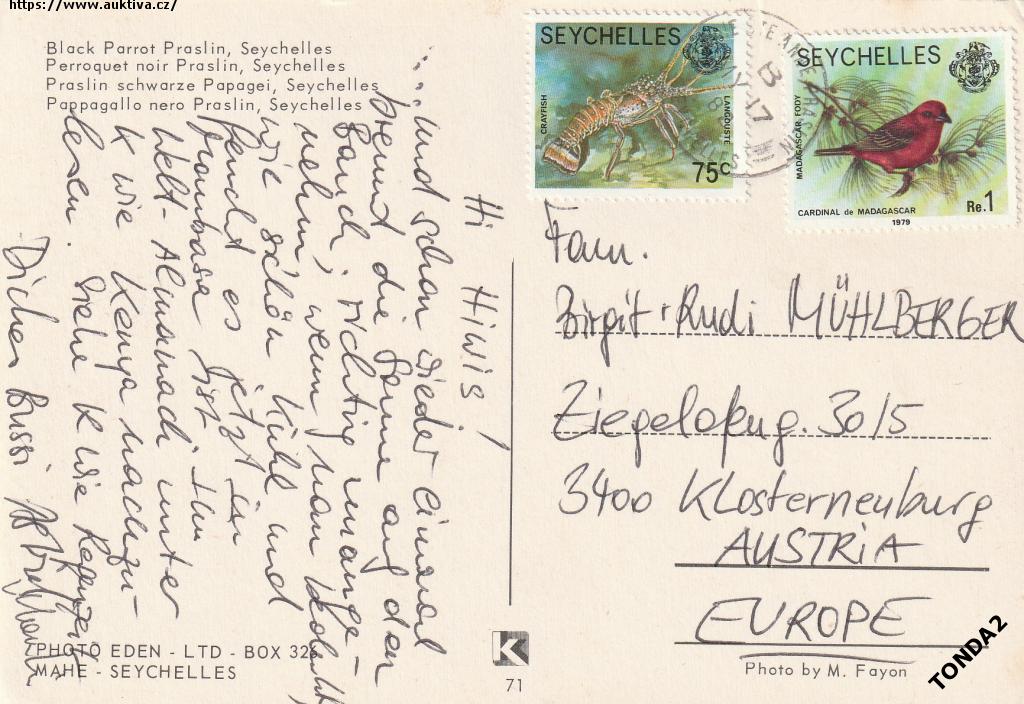 https://www.auktiva.cz/
Black Parrot Praslin, Seychelles
Perroquet noir Praslin, Seychelles
Praslin schwarze Papagei, Seychelles
Pappagallo nero Praslin, Seychelles
SEYCHELLES
CRAYFISH
LANGOUSTE
75c
SEYCHELLES
MADAGASCAR FODY
CARDINAL de MADAGASCAR
Re.1
1979
Hi Hiwis!
...und schon wieder einmal
brennt die Sonne auf den
Bauch; richtig unange-
nehm, wenn man
wie schön kühl und
feucht es jetzt in
Mombasa ist. Im
Welt-Almanach unter
K wie Kenya nachzu-
lesen. Siehe K wie Regenzeit
Dicker Bussi
Fam.
Birgit + Rudi MÜHLBERGER
Ziegelofeng. 30/5
3400 Klosterneuburg
AUSTRIA
EUROPE
PHOTO EDEN - LTD - BOX 326
MAHE - SEYCHELLES
K
71
Photo by M. Fayon
TONDA2